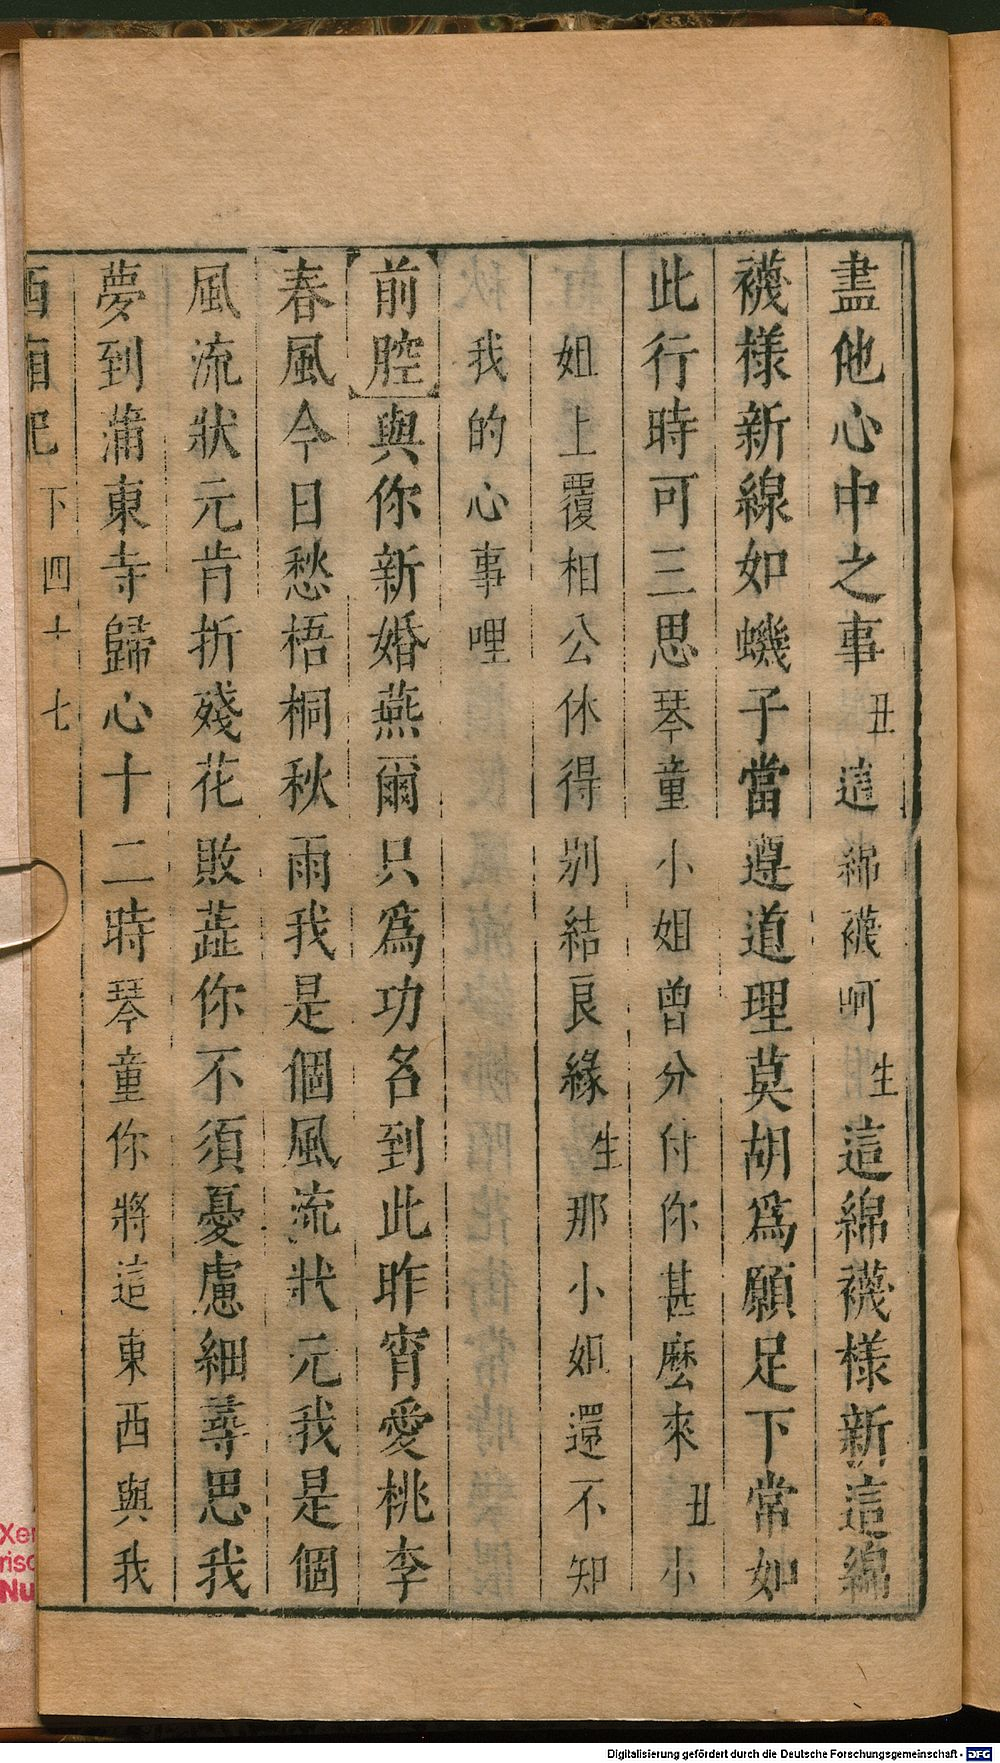 盡他心中之事丑這綿襪呵生這綿襪樣新這綿
襪樣新線如蟣子當遵道理莫胡爲願足下常如
此行時可三思琴童小姐曾分付你甚麽來丑小
姐上覆相公休得別結良緣生那小姐還不知
我的心事哩
前腔與你新婚燕爾只爲功名到此昨宵愛桃李
春風今日愁梧桐秋雨我是個風流狀元我是個
風流狀元肯折殘花敗蕋你不須憂慮細尋思我
夢到蒲東寺歸心十二時琴童你將這東西與我
西廂記 下 四十七
Digitalisierung gefördert durch die Deutsche Forschungsgemeinschaft - DFG